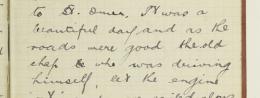 to St. Omer. It was a
beautiful day and as the
roads were good the old
chap who was driving
himself, let the engine